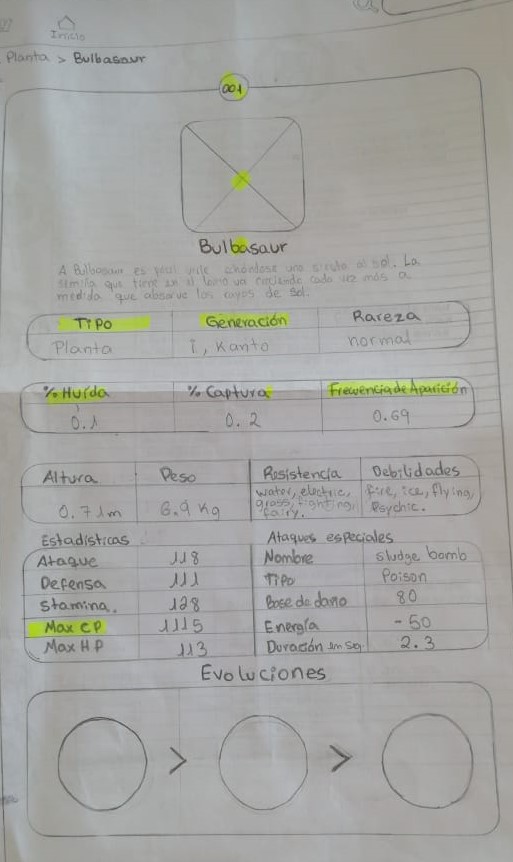 Inicio
Planta > Bulbasaur
001
Bulbasaur
A Bulbasaur es fácil verle echándose una siesta al sol. La
semilla que tiene en el lomo va creciendo cada vez más a
medida que absorve los rayos de sol.
Tipo Generación Rareza
Planta I, Kanto normal
% Huída % Captura Frecuencia de Aparición
0.1 0.2 0.69
Altura Peso Resistencia Debilidades
0.71m 6.9 Kg water, electric, grass, fighting, fairy. fire, ice, flying, Psychic.
Estadísticas Ataques especiales
Ataque 118 Nombre sludge bomb
Defensa 111 Tipo Poison
Stamina. 128 Base de daño 80
Max CP 1115 Energía -50
Max HP 113 Duración en sg. 2.3
Evoluciones
> >